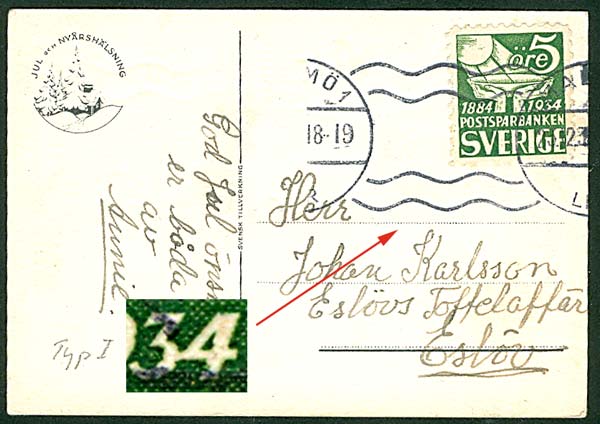 JUL OCH NYÅRSHÄLSNING
God Jul önsk
er båda
av
SVENSK TILLVERKNING
MÖ 1
18-19
öre 5
1884 1934
POSTSPARBANKEN
SVERIGE
Herr
Johan Karlsson
Eslövs Toffelaffär
Eslöv
34
Typ I